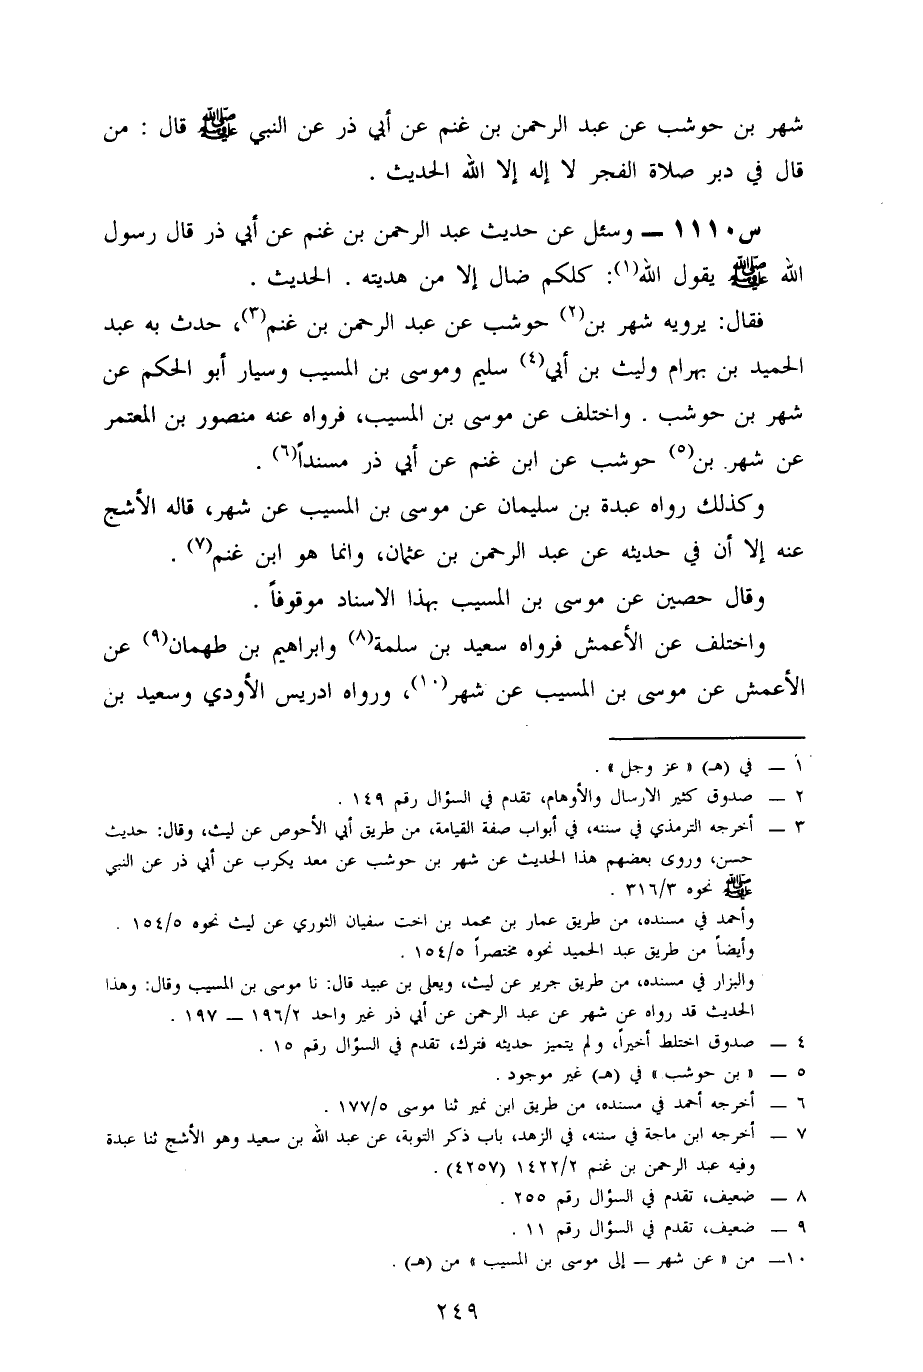 شهر بن حوشب عن عبد الرحمن بن غنم عن أبي ذر عن النبي ﷺ قال : من
قال في دبر صلاة الفجر لا إله إلا الله الحديث .
س١١١٠ – وسئل عن حديث عبد الرحمن بن غنم عن أبي ذر قال رسول
الله ﷺ يقول الله(١): كلكم ضال إلا من هديته . الحديث .
فقال: يرويه شهر بن(٢) حوشب عن عبد الرحمن بن غنم(٣)، حدث به عبد
الحميد بن بهرام وليث بن أبي(٤) سليم وموسى بن المسيب وسيار أبو الحكم عن
شهر بن حوشب . واختلف عن موسى بن المسيب، فرواه عنه منصور بن المعتمر
عن شهر بن(٥) حوشب عن ابن غنم عن أبي ذر مسنداً(٦) .
وكذلك رواه عبدة بن سليمان عن موسى بن المسيب عن شهر، قاله الأشج
عنه إلا أن في حديثه عن عبد الرحمن بن عثمان، وانما هو ابن غنم(٧) .
وقال حصين عن موسى بن المسيب بهذا الاسناد موقوفاً .
واختلف عن الأعمش فرواه سعيد بن سلمة(٨) وابراهيم بن طهمان(٩) عن
الأعمش عن موسى بن المسيب عن شهر(١٠)، ورواه ادريس الأودي وسعيد بن
١ – في (هـ) « عز وجل » .
٢ – صدوق كثير الارسال والأوهام، تقدم في السؤال رقم ١٤٩ .
٣ – أخرجه الترمذي في سننه، في أبواب صفة القيامة، من طريق أبي الأحوص عن ليث، وقال: حديث
حسن، وروى بعضهم هذا الحديث عن شهر بن حوشب عن معد يكرب عن أبي ذر عن النبي
ﷺ نحوه ٣١٦/٣ .
وأحمد في مسنده، من طريق عمار بن محمد بن اخت سفيان الثوري عن ليث نحوه ١٥٤/٥ .
وأيضاً من طريق عبد الحميد نحوه مختصراً ١٥٤/٥ .
والبزار في مسنده، من طريق جرير عن ليث، ويعلى بن عبيد قال: نا موسى بن المسيب وقال: وهذا
الحديث قد رواه عن شهر عن عبد الرحمن عن أبي ذر غير واحد ١٩٦/٢ – ١٩٧ .
٤ – صدوق اختلط أخيراً، ولم يتميز حديثه فترك، تقدم في السؤال رقم ١٥ .
٥ – « بن حوشب » في (هـ) غير موجود .
٦ – أخرجه أحمد في مسنده، من طريق ابن نمير ثنا موسى ١٧٧/٥ .
٧ – أخرجه ابن ماجة في سننه، في الزهد، باب ذكر التوبة، عن عبد الله بن سعيد وهو الأشج ثنا عبدة
وفيه عبد الرحمن بن غنم ١٤٢٢/٢ (٤٢٥٧) .
٨ – ضعيف، تقدم في السؤال رقم ٢٥٥ .
٩ – ضعيف، تقدم في السؤال رقم ١١ .
١٠– من « عن شهر – إلى موسى بن المسيب » من (هـ) .
٢٤٩